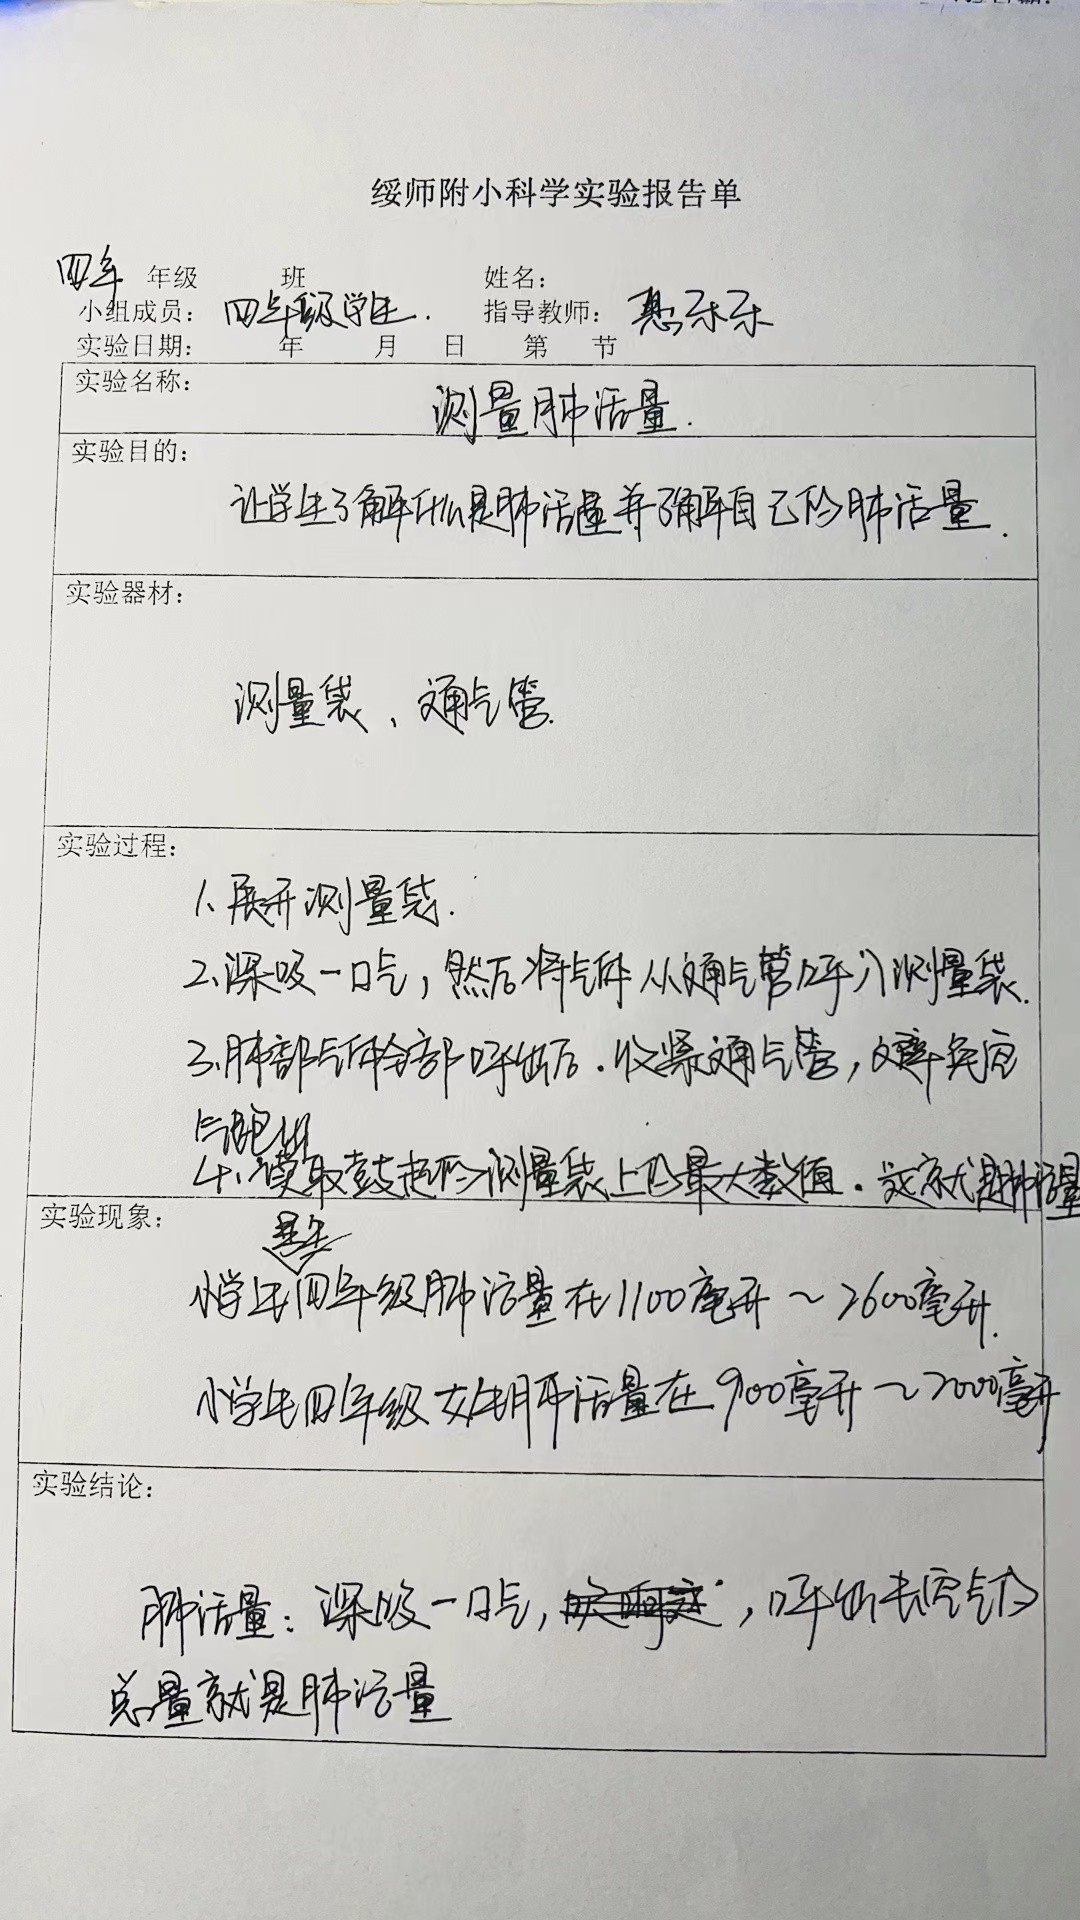 绥师附小科学实验报告单
四年 年级 班 姓名：
小组成员：四年级学生. 指导教师：
实验日期： 年 月 日 第 节
实验名称：
测量肺活量.
实验目的：
让学生了解什么是肺活量并了解自己的肺活量.
实验器材：
测量袋、通气管.
实验过程：
1、展开测量袋.
2、深吸一口气，然后将气体从通气管呼入测量袋.
3、肺部气体全部呼出后.收紧通气管，避免空
气跑出
4、读取鼓起的测量袋上的最大数值.这就是肺活量
实验现象：
男生
小学生四年级肺活量在1100毫升～2600毫升.
小学生四年级女生肺活量在900毫升～2000毫升
实验结论：
肺活量：深吸一口气，，呼出去空气的
总量就是肺活量